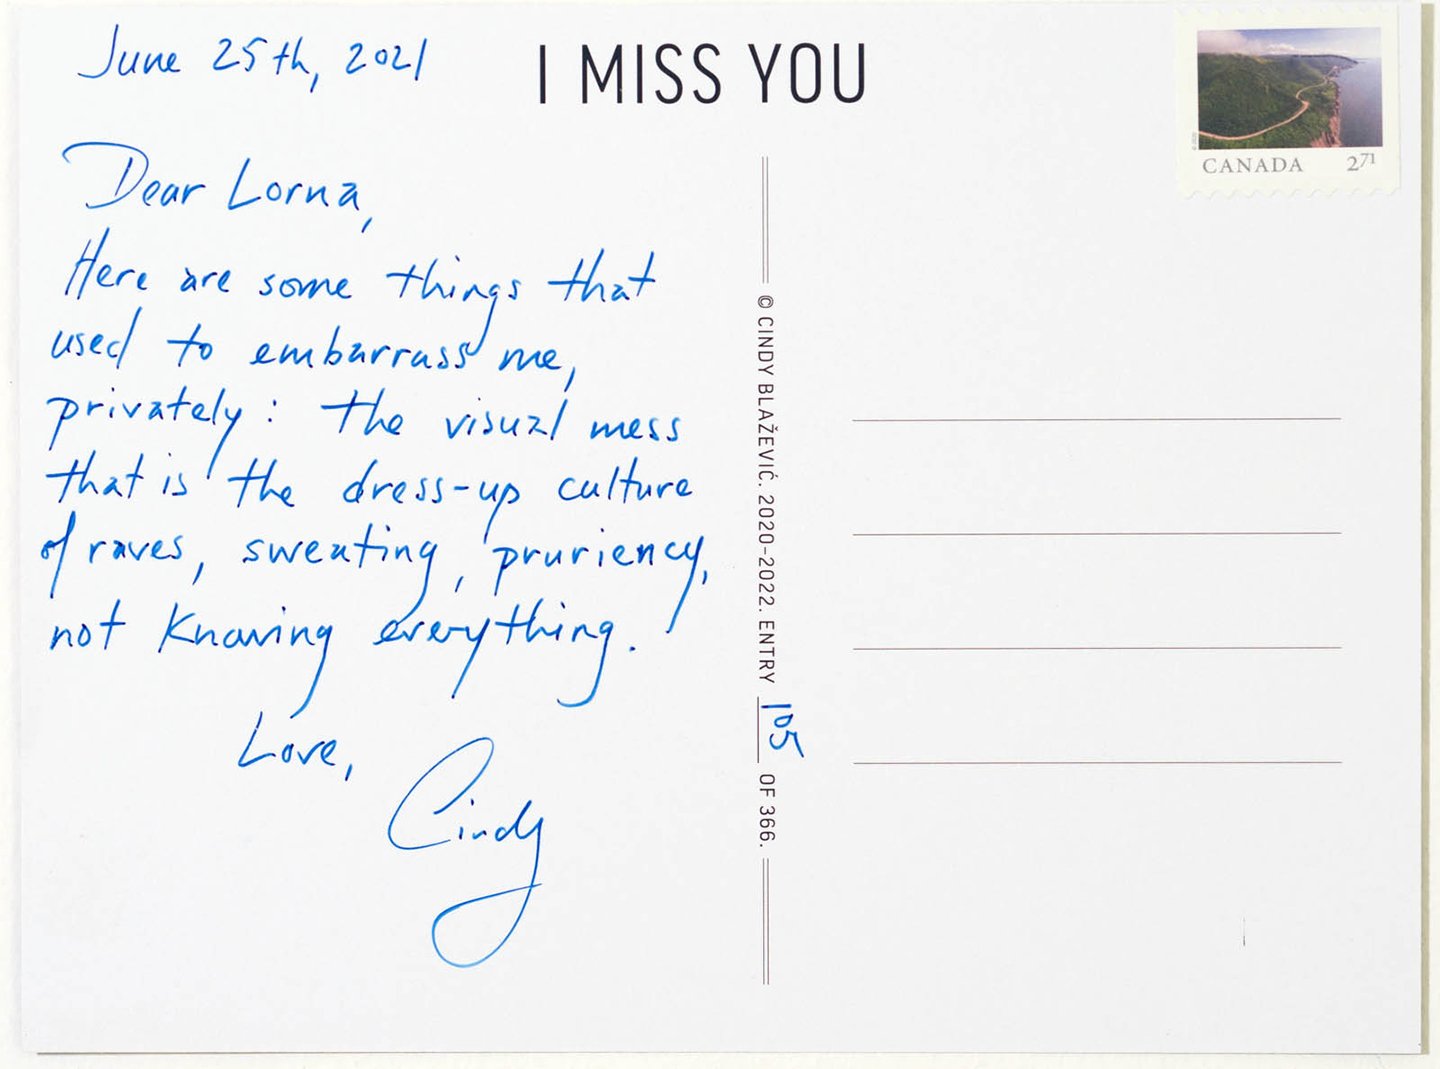 June 25th, 2021
I MISS YOU
CANADA 2⁷¹
Dear Lorna,
Here are some things that
used to embarrass me,
privately: the visual mess
that is the dress-up culture
of raves, sweating, pruriency,
not knowing everything.
Love,
Cindy
© CINDY BLAŽEVIĆ. 2020-2022. ENTRY 105 OF 366.